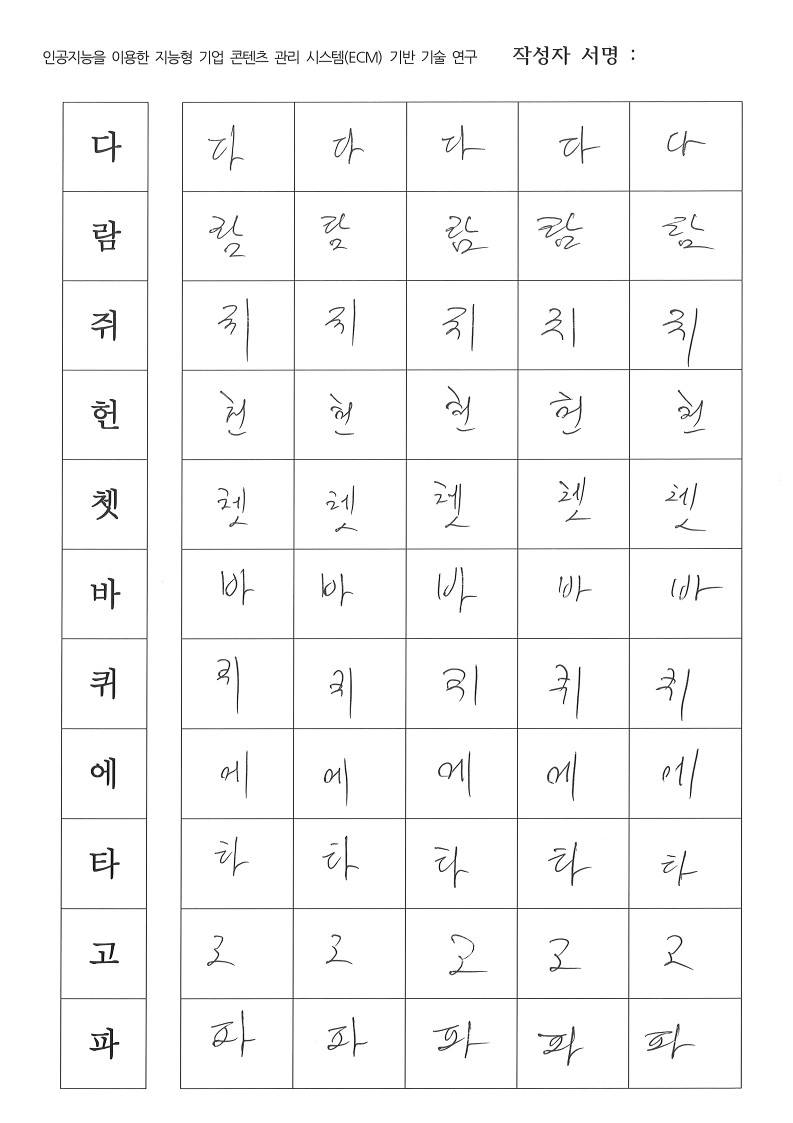 인공지능을 이용한 지능형 기업 콘텐츠 관리 시스템(ECM) 기반 기술 연구 작성자 서명 :
다 다 다 다 다 다
람 람 람 람 람 람
쥐 쥐 쥐 쥐 쥐 쥐
헌 헌 헌 헌 헌 헌
쳇 쳇 쳇 쳇 쳇 쳇
바 바 바 바 바 바
퀴 퀴 퀴 퀴 퀴 퀴
에 에 에 에 에 에
타 타 타 타 타 타
고 고 고 고 고 고
파 파 파 파 파 파